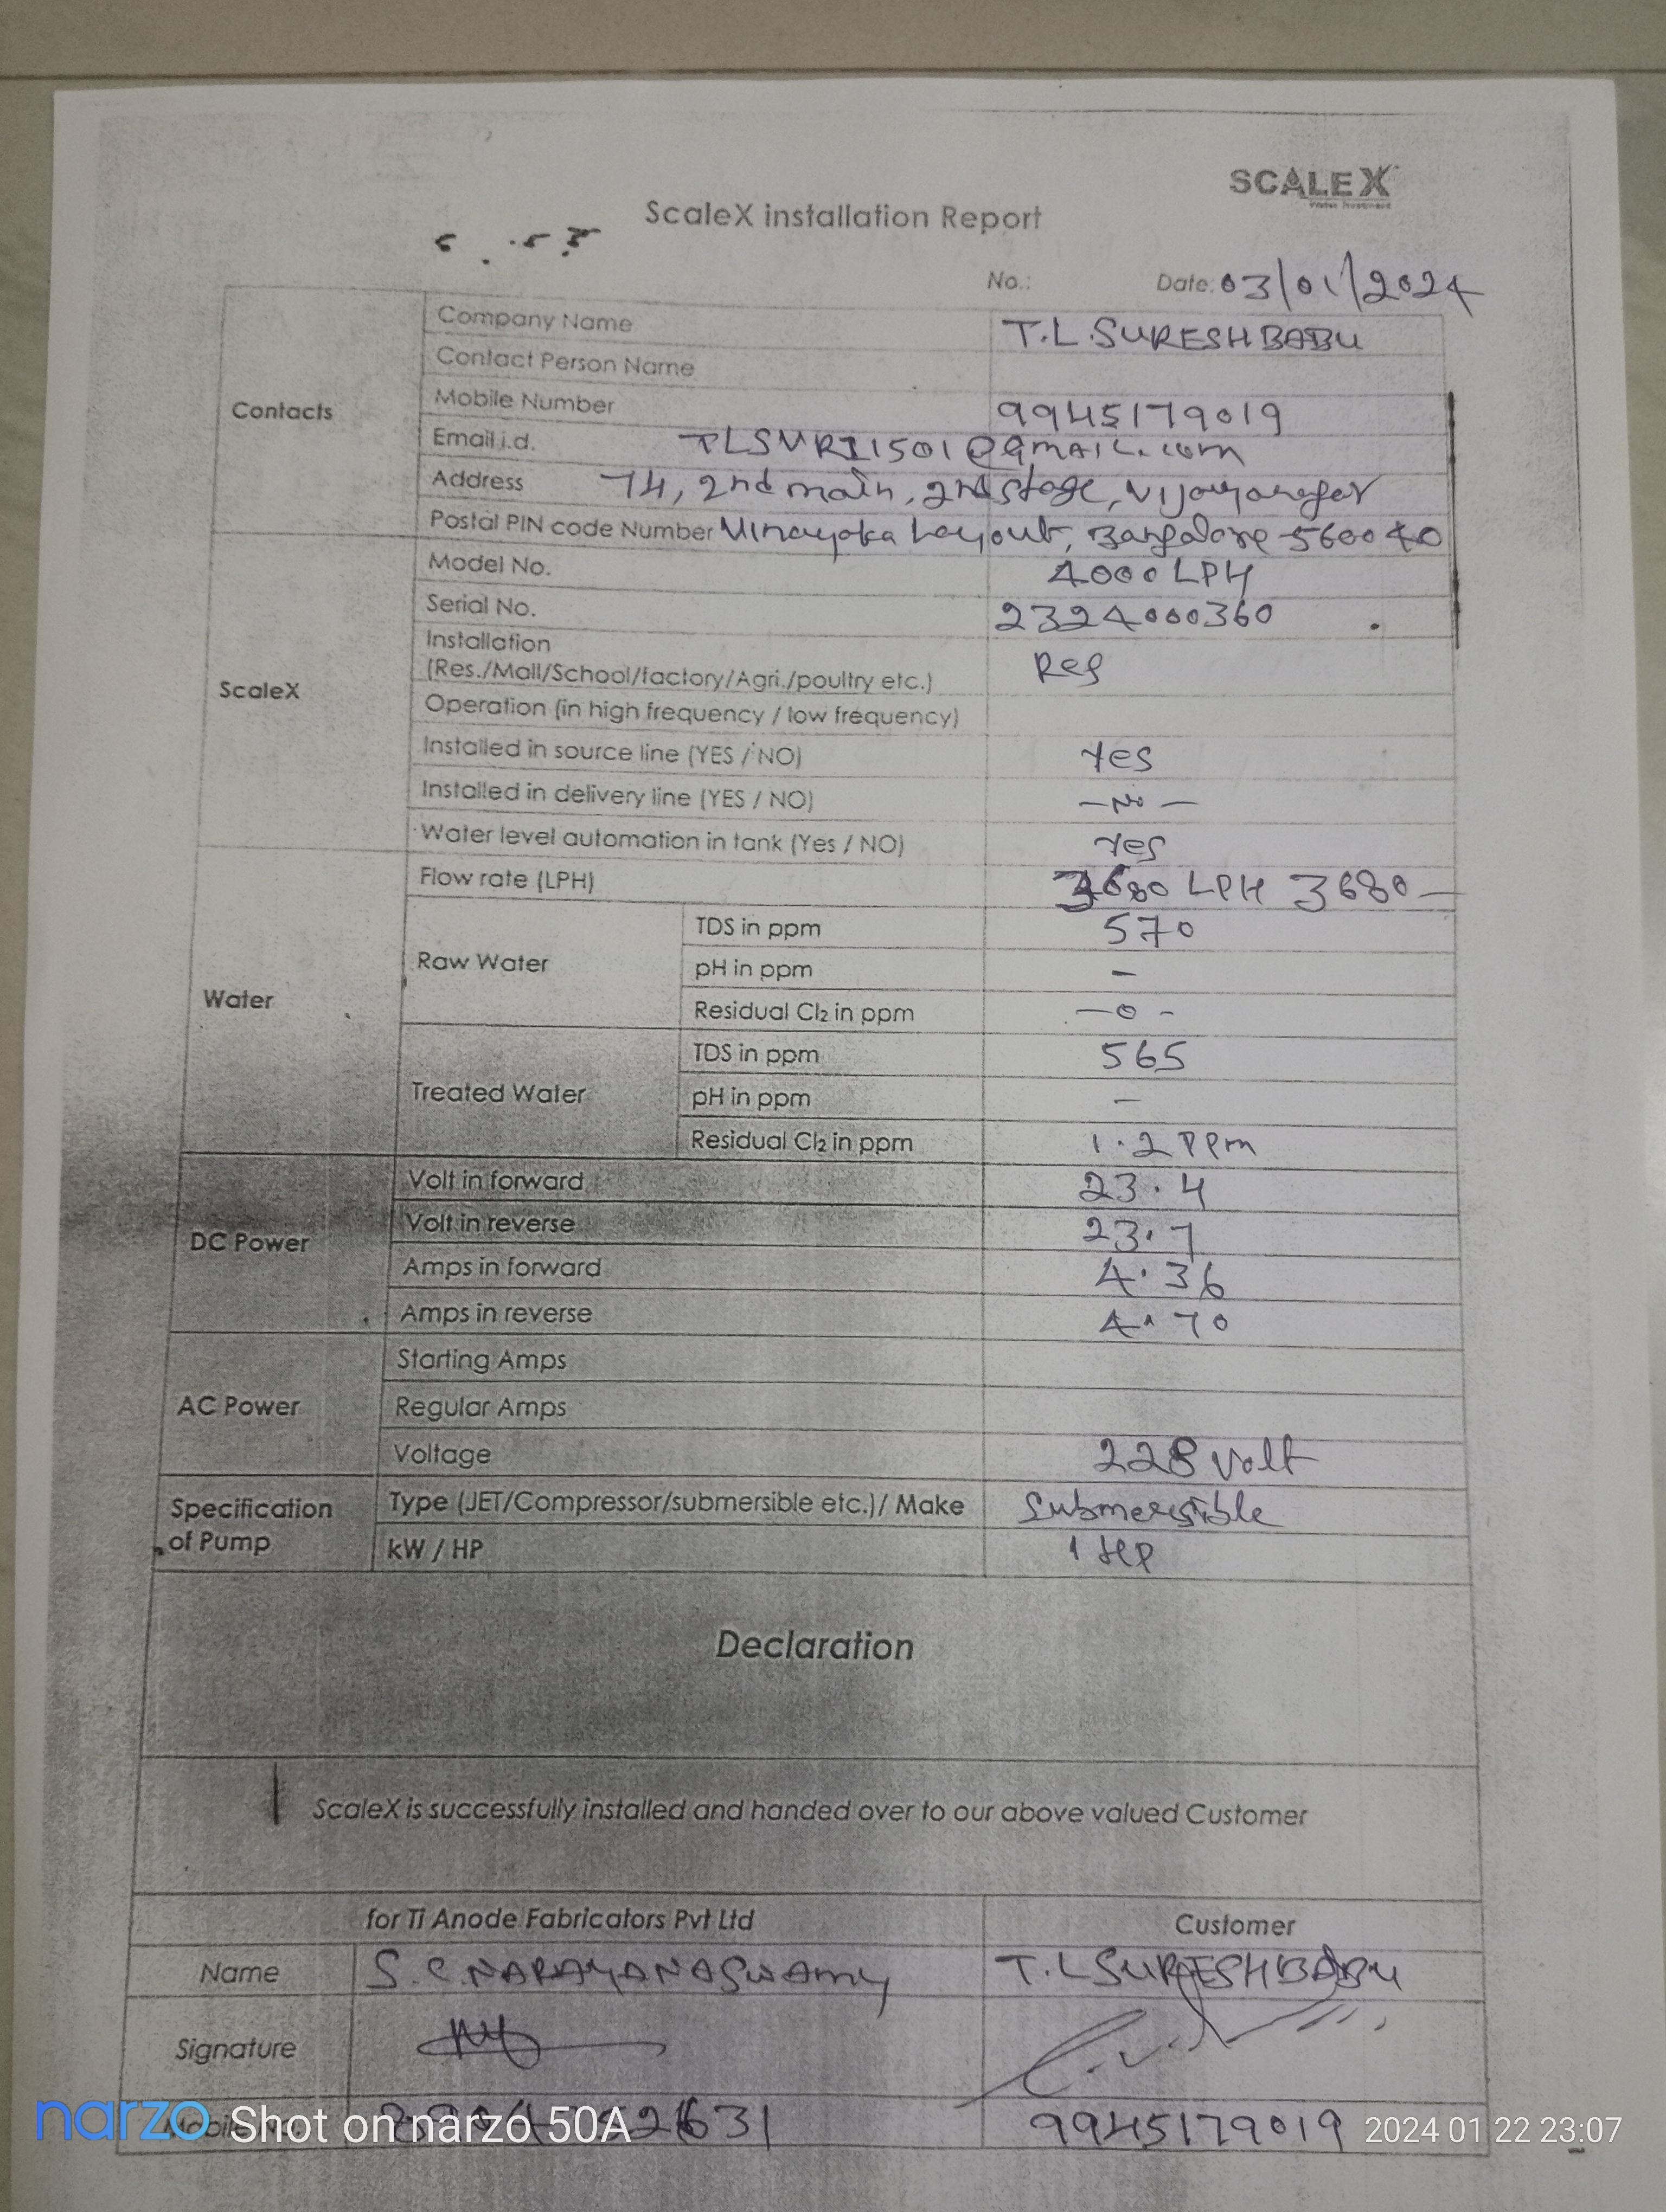 SCALEX
Water Treatment
ScaleX installation Report
No.: Date: 03/01/2024
Contacts
Company Name T.L.SURESHBABU
Contact Person Name
Mobile Number 9945179019
Email i.d. TLSURI1501@GMAIL.com
Address 74, 2nd main, 2nd stage, Vijayanagar
Postal PIN code Number Vinayaka Layout, Bangalore-560040
ScaleX
Model No. 4000 LPH
Serial No. 2324000360
Installation
(Res./Mall/School/factory/Agri./poultry etc.) Res
Operation (in high frequency / low frequency)
Installed in source line (YES / NO) Yes
Installed in delivery line (YES / NO) —No—
Water level automation in tank (Yes / NO) Yes
Water
Flow rate (LPH) 3680 LPH 3680—
Raw Water
TDS in ppm 570
pH in ppm –
Residual Cl₂ in ppm —0-
Treated Water
TDS in ppm 565
pH in ppm –
Residual Cl₂ in ppm 1.2 PPm
DC Power
Volt in forward 23.4
Volt in reverse 23.7
Amps in forward 4.36
Amps in reverse 4.70
AC Power
Starting Amps
Regular Amps
Voltage 228 Volt
Specification
of Pump
Type (JET/Compressor/submersible etc.)/ Make Submersible
kW / HP 1 HP
Declaration
ScaleX is successfully installed and handed over to our above valued Customer
for Ti Anode Fabricators Pvt Ltd Customer
Name S.C.NARAYANASWAMY T.L SURESHBABU
Signature
Mobile No. 9945179019
narzo Shot on narzo 50A 2024 01 22 23:07